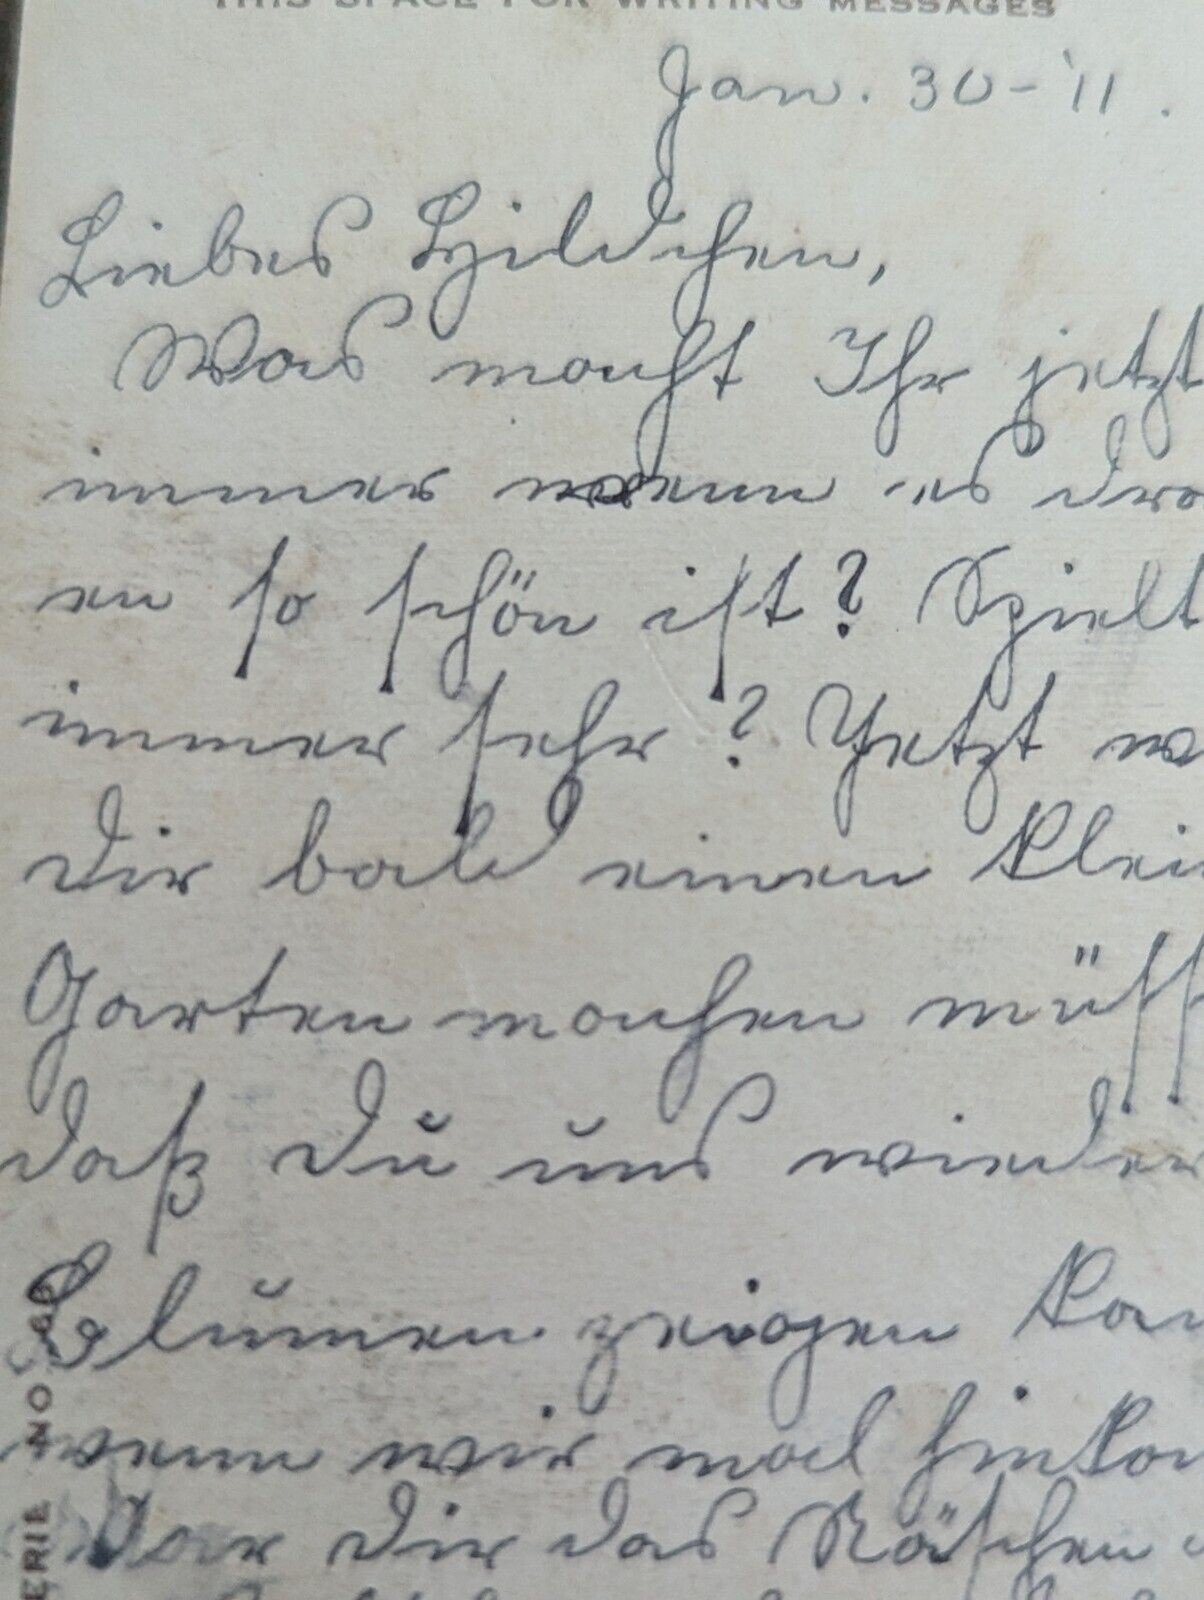 THIS SPACE FOR WRITING MESSAGES
Jan. 30-'11.
Liebes Hildchen,
Was macht Ihr jetzt
immer wenn es dra
en so schön ist? Spielt
immer sehr? Jetzt w
Dir bald einen klei
Garten machen müss
daß Du uns wieder
Blumen zeigen kan
wenn wir mal hinko
dir das Näschen
ERIE NO